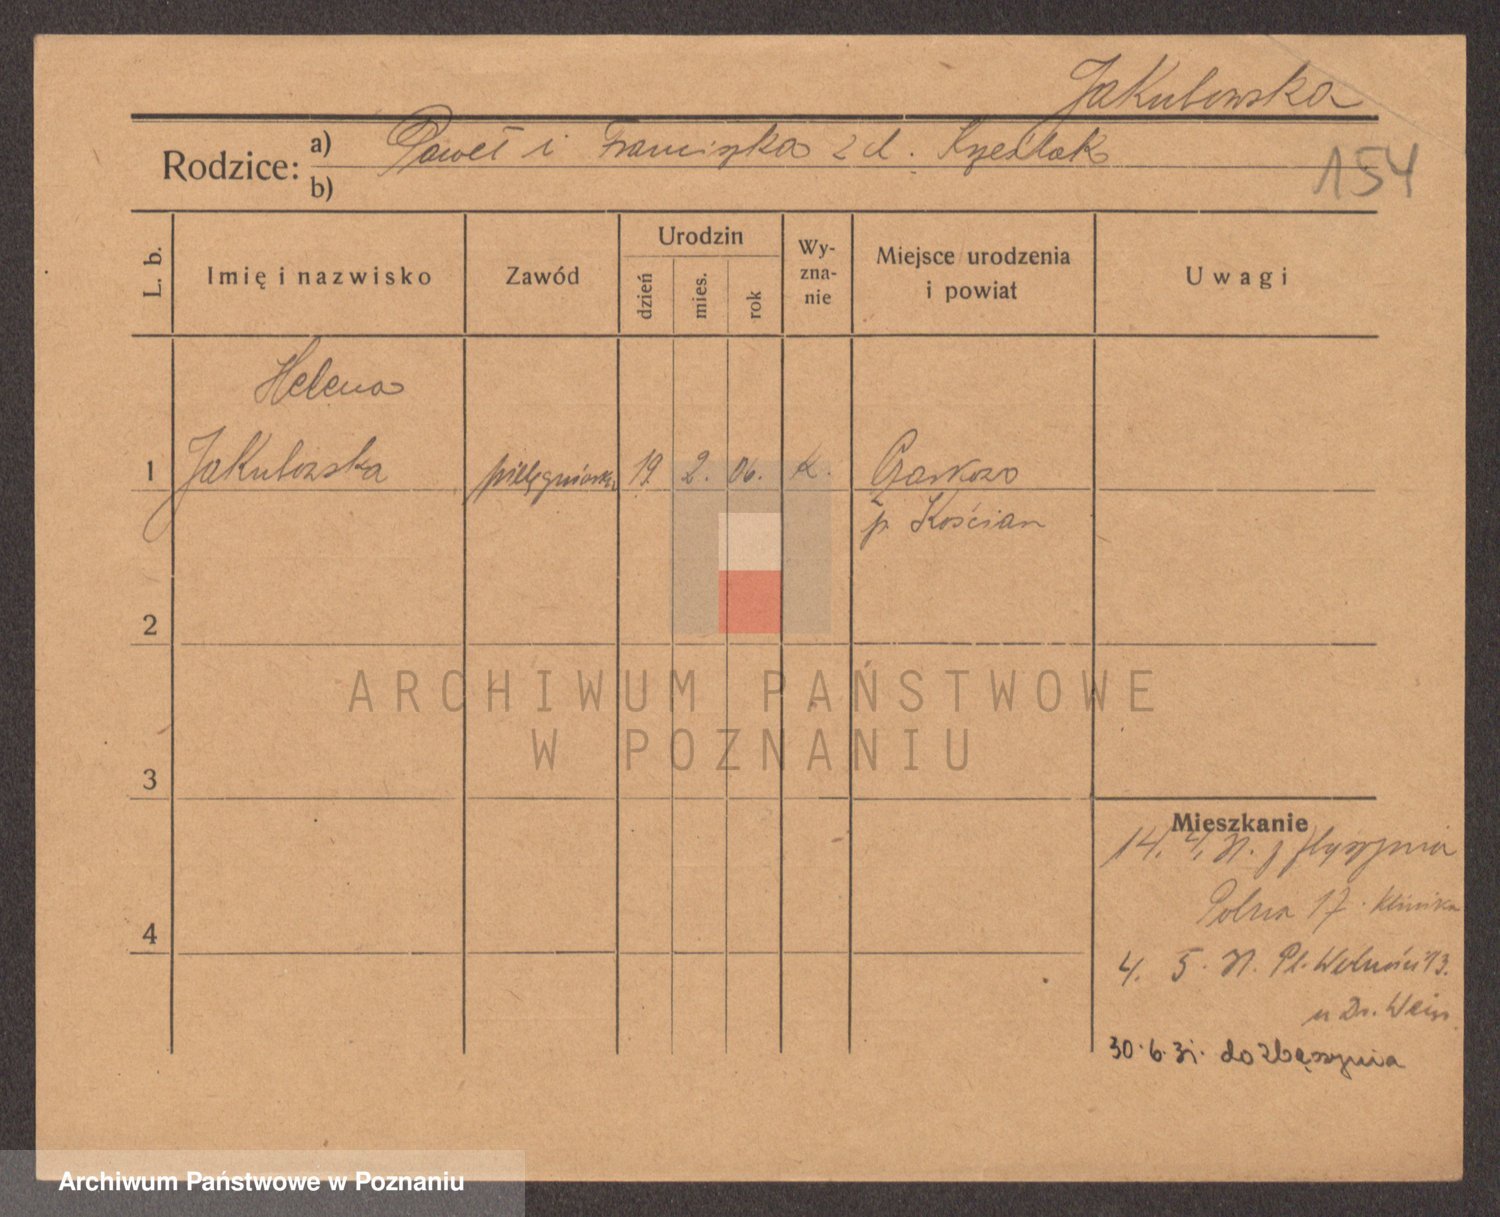 Jakubowska
Rodzice: a) Paweł i Franciszka z d.
b)
154
L. b.
Imię i nazwisko
Zawód
Urodzin
dzień
mies.
rok
Wy-
zna-
nie
Miejsce urodzenia
i powiat
Uwagi
Helena
1 Jakubowska pielęgniarka 19. 2. 06. k.
p. Kościan
2
3
4
Mieszkanie
14. 4. z
Polna 17. Klinika
4. 5. Pl. Wolności 13.
u Dr. Weiss.
30.6.31. do Zbąszynia
ARCHIWUM PAŃSTWOWE
W POZNANIU
Archiwum Państwowe w Poznaniu